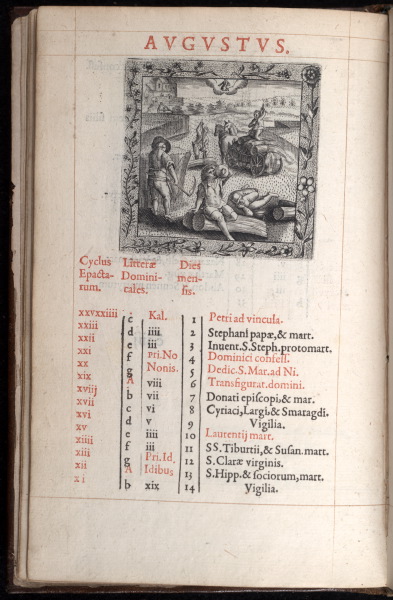 AVGVSTVS.
Cyclus Litteræ Dies
Epacta- Domini- men-
rum. cales. sis.
xxvxxiiii c Kal. 1 Petri ad vincula.
xxiii d iiii 2 Stephani papæ, & mart.
xxii e iii 3 Inuent. S. Steph. protomart.
xxi f pri. No 4 Dominici confess.
xx g Nonis. 5 Dedic. S. Mar. ad Ni.
xix A viii 6 Transfigurat. domini.
xviij b vii 7 Donati episcopi, & mar.
xvii c vi 8 Cyriaci, Largi, & Smaragdi.
xvi d v 9 Vigilia.
xv e iiii 10 Laurentij mart.
xiiii f iii 11 SS. Tiburtii, & Susan. mart.
xiii g Pri. Id. 12 S. Claræ virginis.
xii A Idibus 13 S. Hipp. & sociorum, mart.
xi b xix 14 Vigilia.